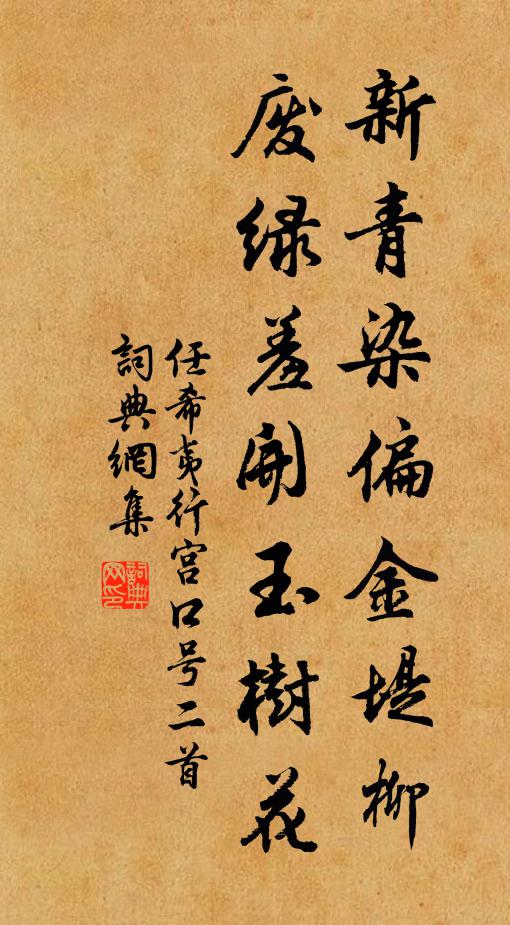 新青染偏金堤柳
废绿羞开玉樹花
任希夷行宫口号二首
詞典網集
詞典网印